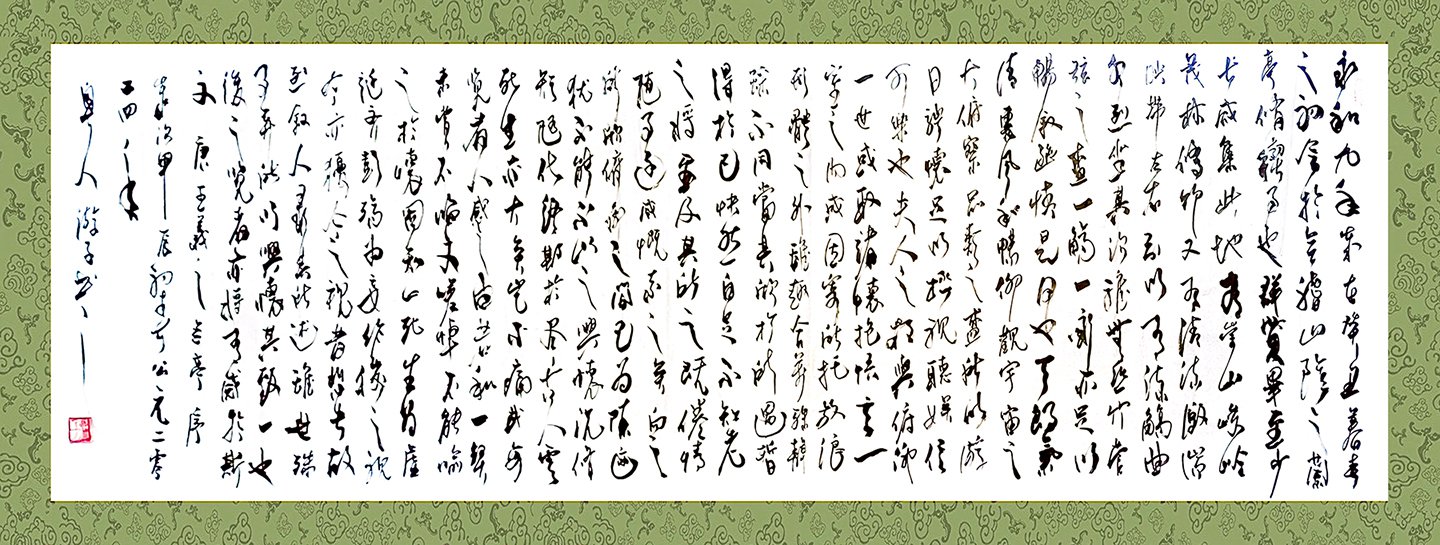 永和九年歲在癸丑暮春
之初會於會稽山陰之蘭
亭修禊事也群賢畢至少
長咸集此地有崇山峻嶺
茂林修竹又有清流激湍
映帶左右引以為流觴曲
水列坐其次雖無絲竹管
弦之盛一觴一詠亦足以
暢敘幽情是日也天朗氣
清惠風和暢仰觀宇宙之
大俯察品類之盛所以游
目騁懷足以極視聽娛信
可樂也夫人之相與俯仰
一世或取諸懷抱悟言一
室之內或因寄所托放浪
形骸之外雖趣舍萬殊靜
躁不同當其欣於所遇暫
得於己快然自足不知老
之將至及其所之既倦情
隨事遷感慨系之矣向之
所欣俯仰之間已為陳跡
猶不能不以之興懷況修
短隨化終期於盡古人云
死生亦大矣豈不痛哉每
覽昔人感之由若合一契
未嘗不臨文嗟悼不能喻
之於懷固知一死生為虛
誕齊彭殤為妄作後之視
今亦猶今之視昔悲夫故
列敘人錄其所述雖世殊
事異所以興懷其致一也
後之覽者亦將有感於斯
文 唐王羲之蘭亭序
歲次甲辰初冬 公元二零
二四年
人游子書